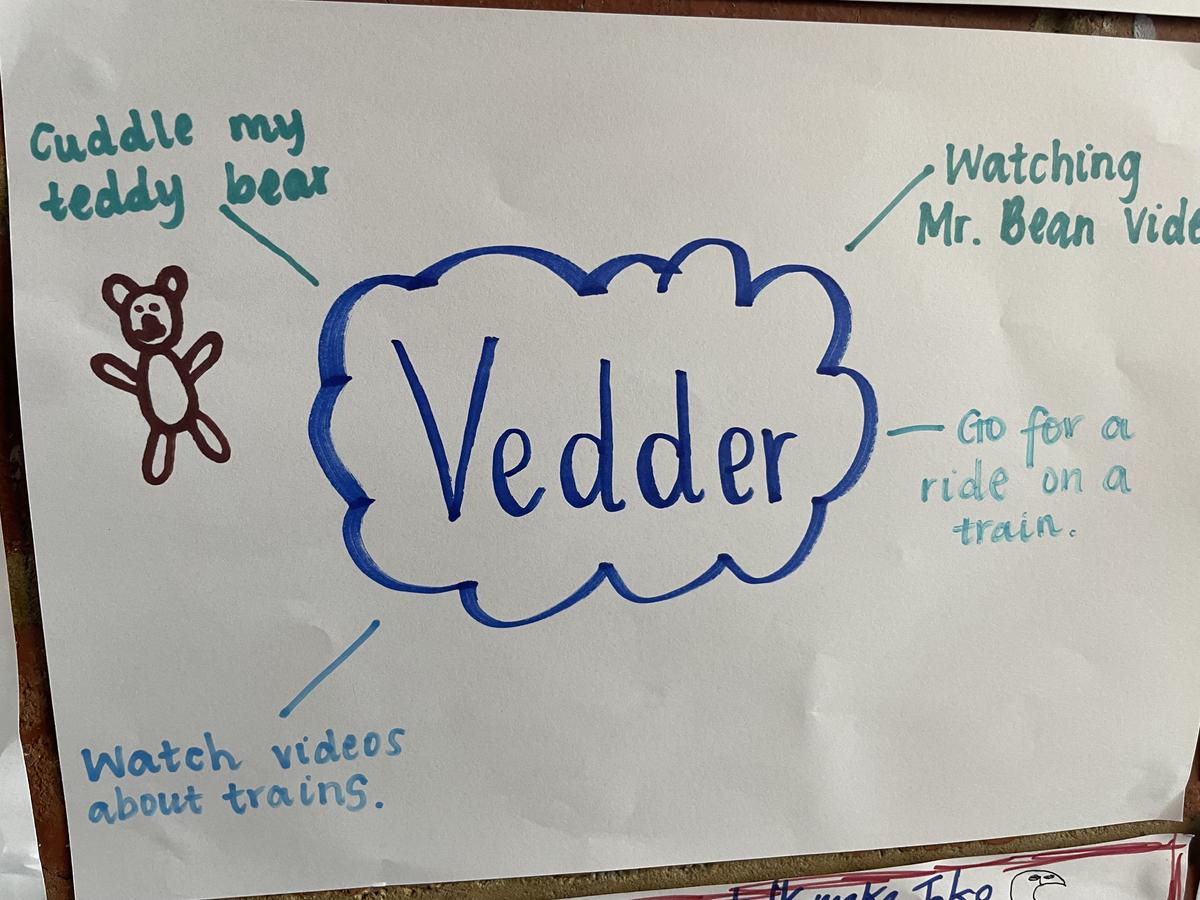 Cuddle my
teddy bear
Watching
Mr. Bean Vide
Vedder
Go for a
ride on a
train.
Watch videos
about trains.
make